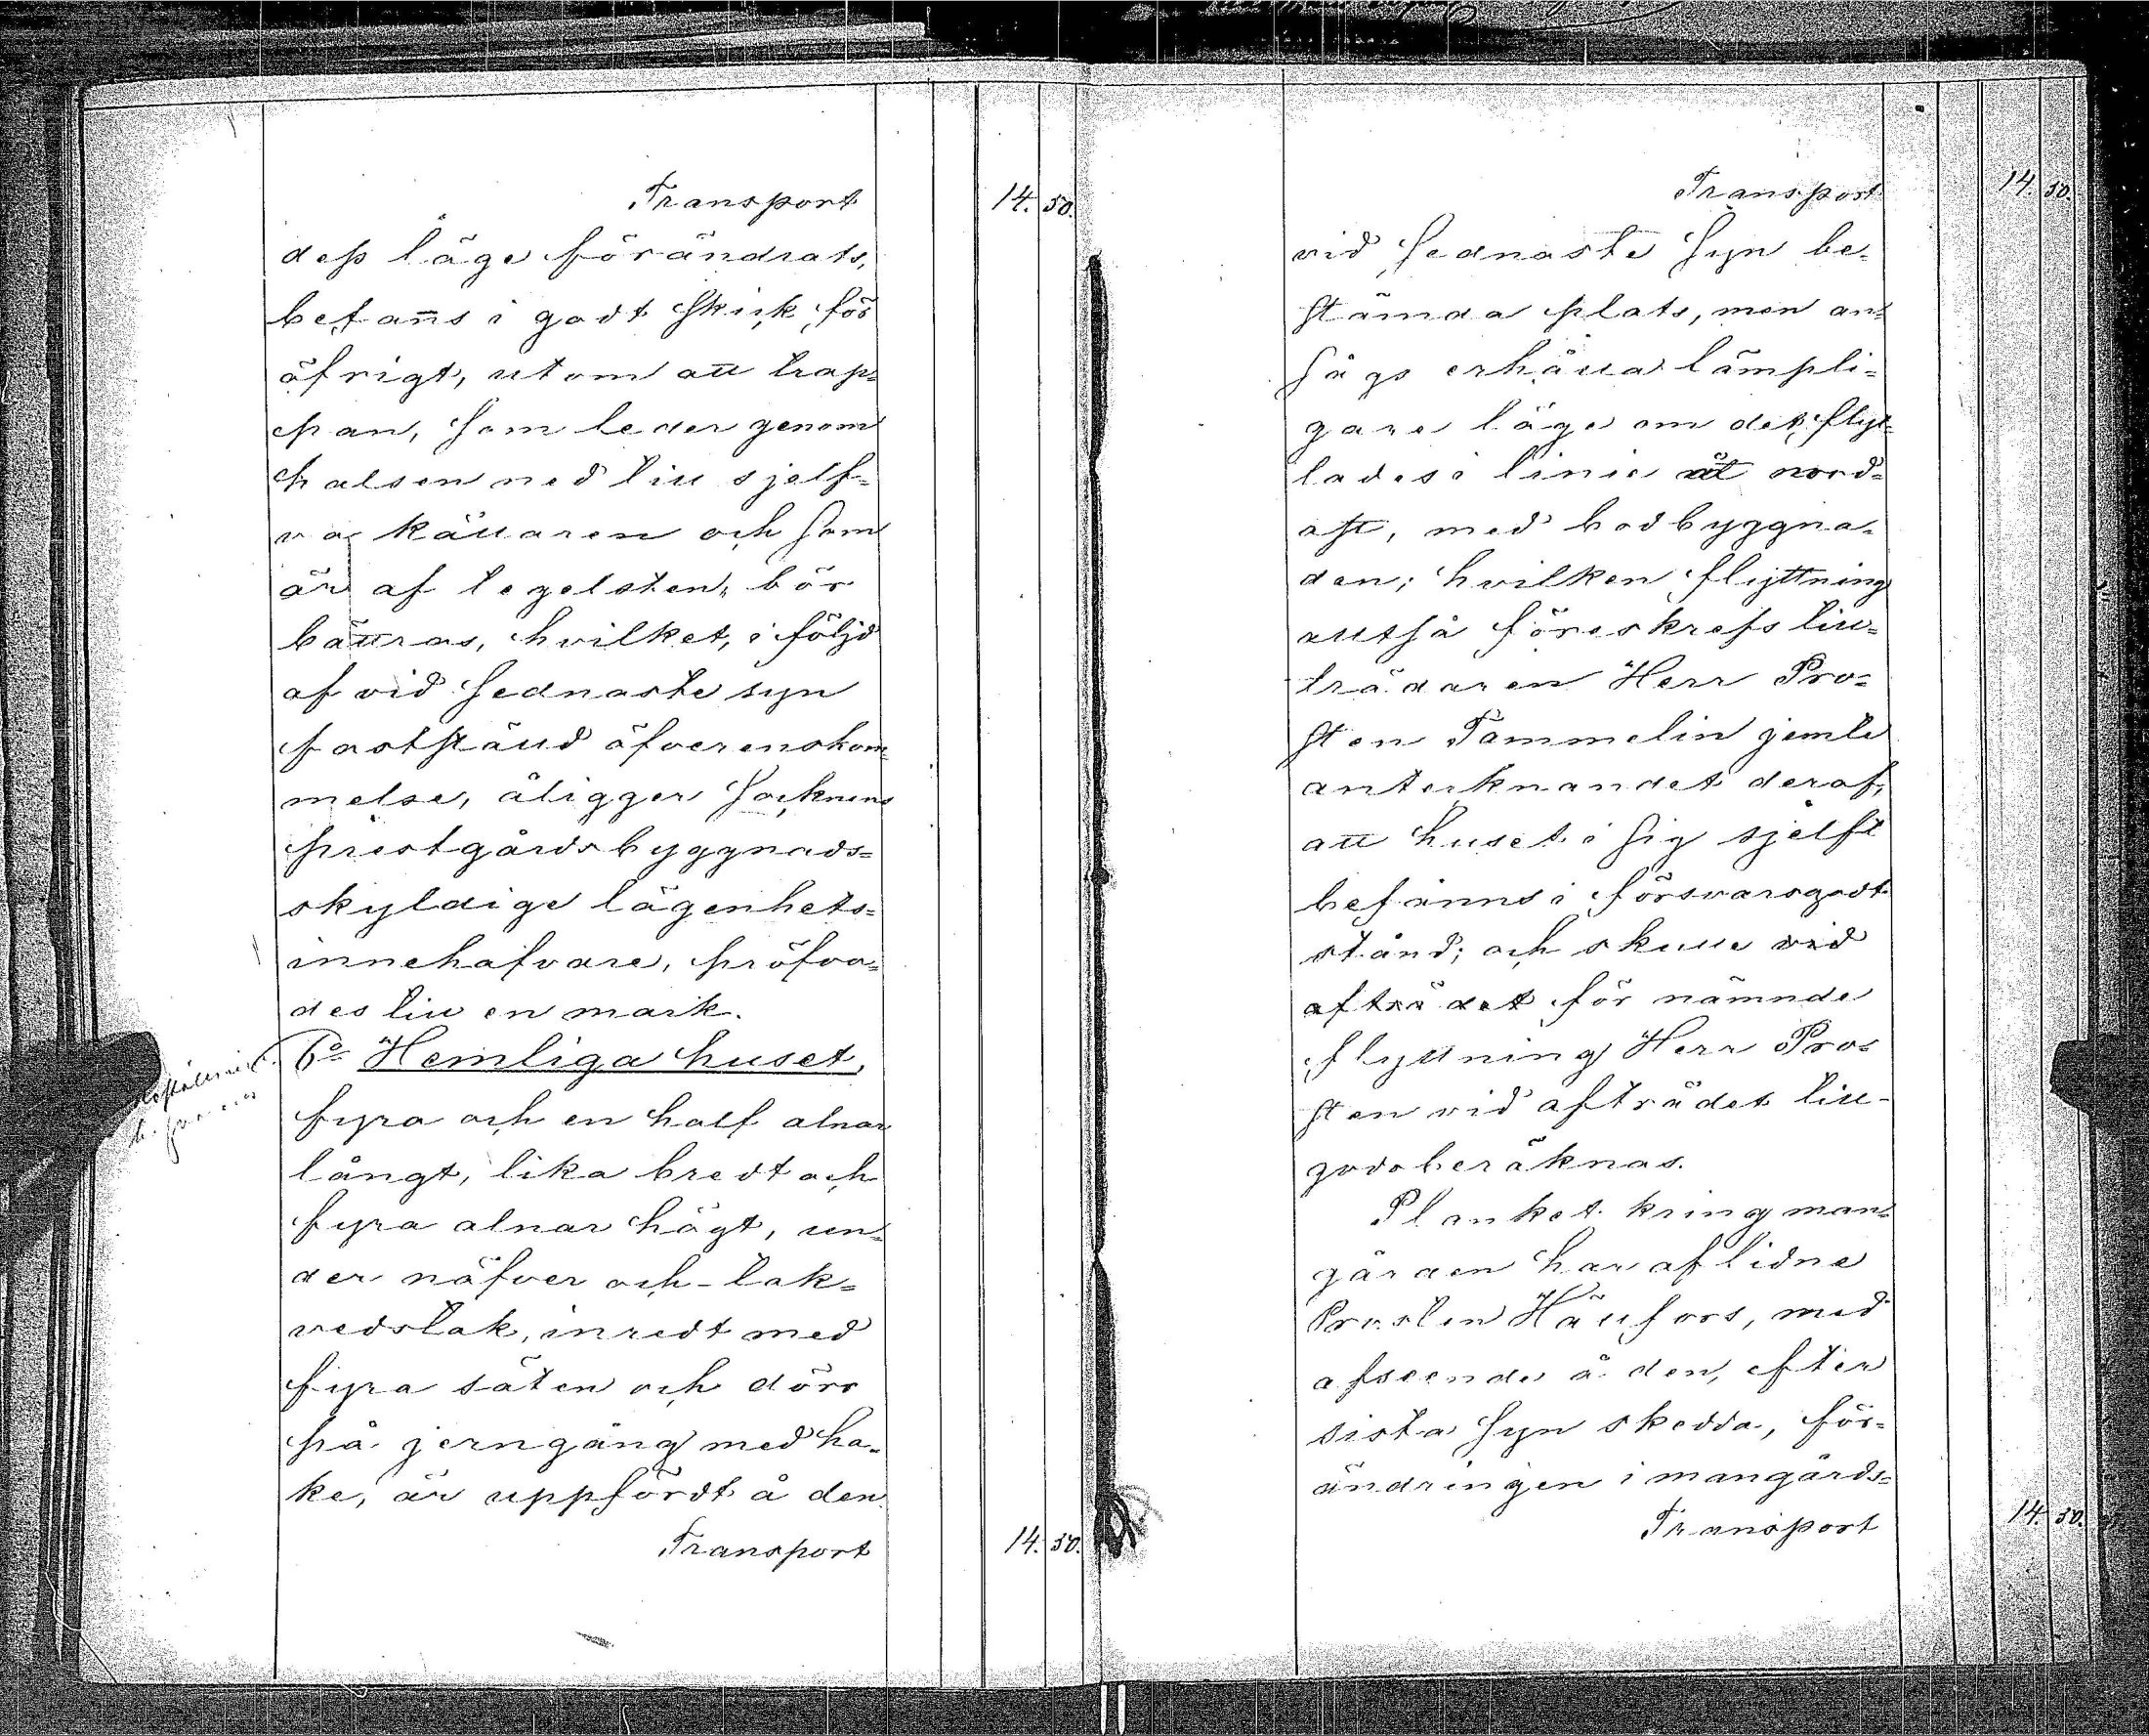 Transport 14. 50.
dess läge förändrats,
befanns i godt skick för
öfrigt, utom att trap=
pan, som leder genom
halsen ned till sjelf=
va källaren och som
är af tegelsten, bör
bättras, hvilket, i följd
af vid sednaste syn
fastställd öfverenskom=
melse, åligger Socknens
prestgårdsbyggnads=
skyldige lägenhets=
innehafvare, pröfva=
des till en mark.
6o Hemliga huset,
fyra och en half alnar
långt, lika bredt och
fyra alnar högt, un=
der näfver och tak=
vedstak, inredt med
fyra säten och dörr
på jerngång med ha=
ke, är uppfördt å den
Transport 14. 50.
Transport 14. 50.
vid sednaste Syn be=
stämda plats, men an=
sågs erhålla lämpli=
gare läge om det flyt=
tades i linie åt nord=
ost, med bodbyggna=
den; hvilken flyttning
alltså föreskrefs till=
trädaren Herr Pro=
sten Tammelin jemte
anteknandet deraf,
att huset i sig sjelft
befanns i försvarsgodt
stånd; och skulle vid
afträdet för nämnde
flyttning Herr Pro=
sten vid afträdet till=
godoberäknas.
Planket kring man=
gården har aflidne
Prosten Hällfors, med
afseende å den, efter
sista syn skedda, för=
ändringen i mangårds=
Transport 14. 50.